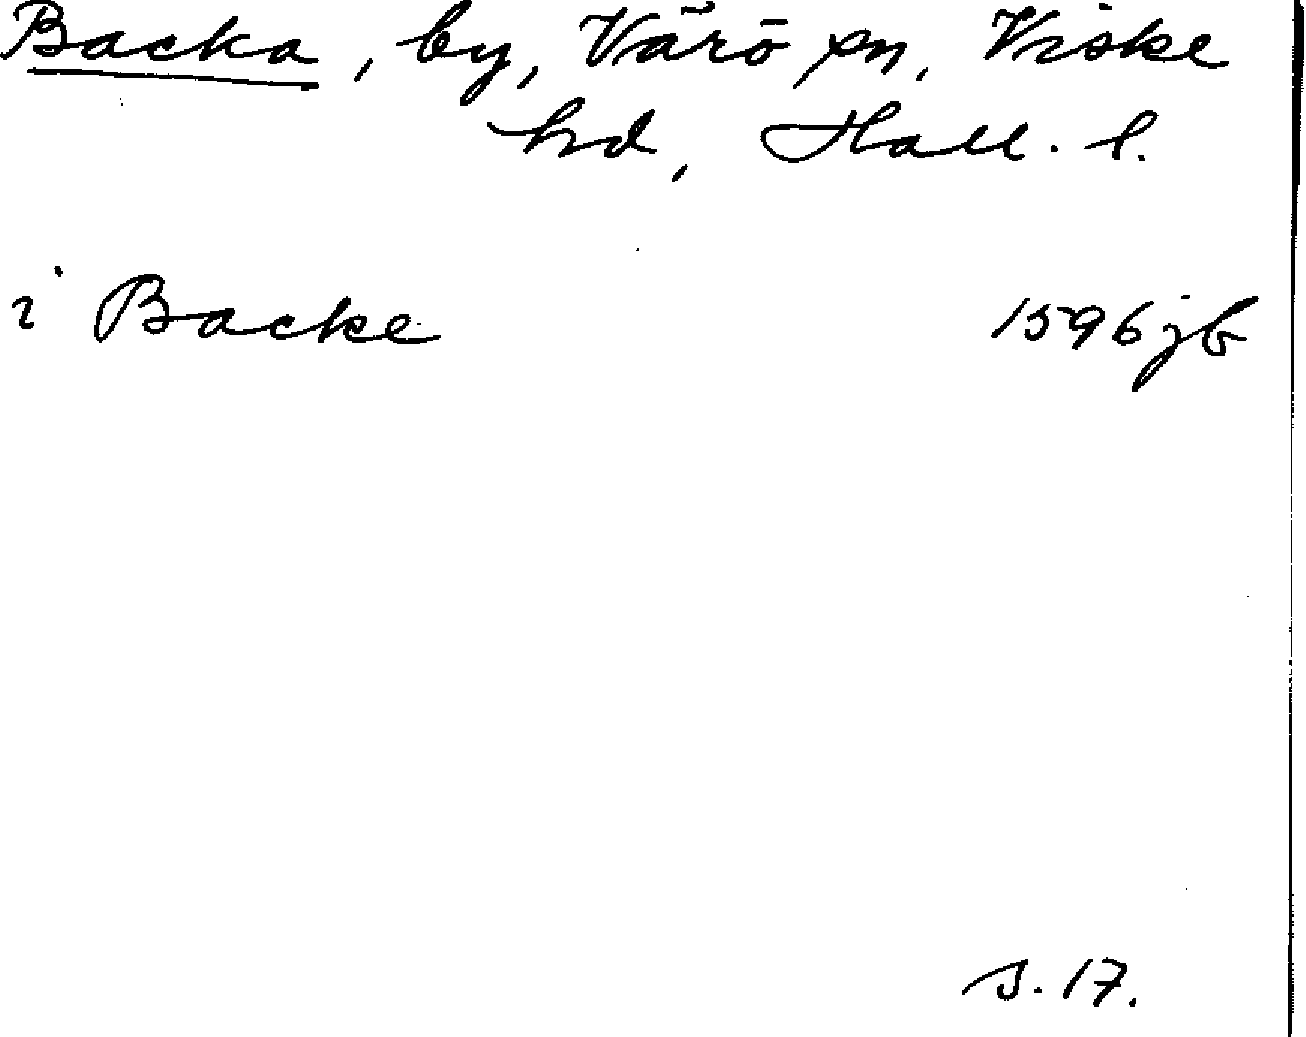 Backa, by, Värö sn, Viske
hd, Hall. l.
i Backe 1596 jb
s. 17.